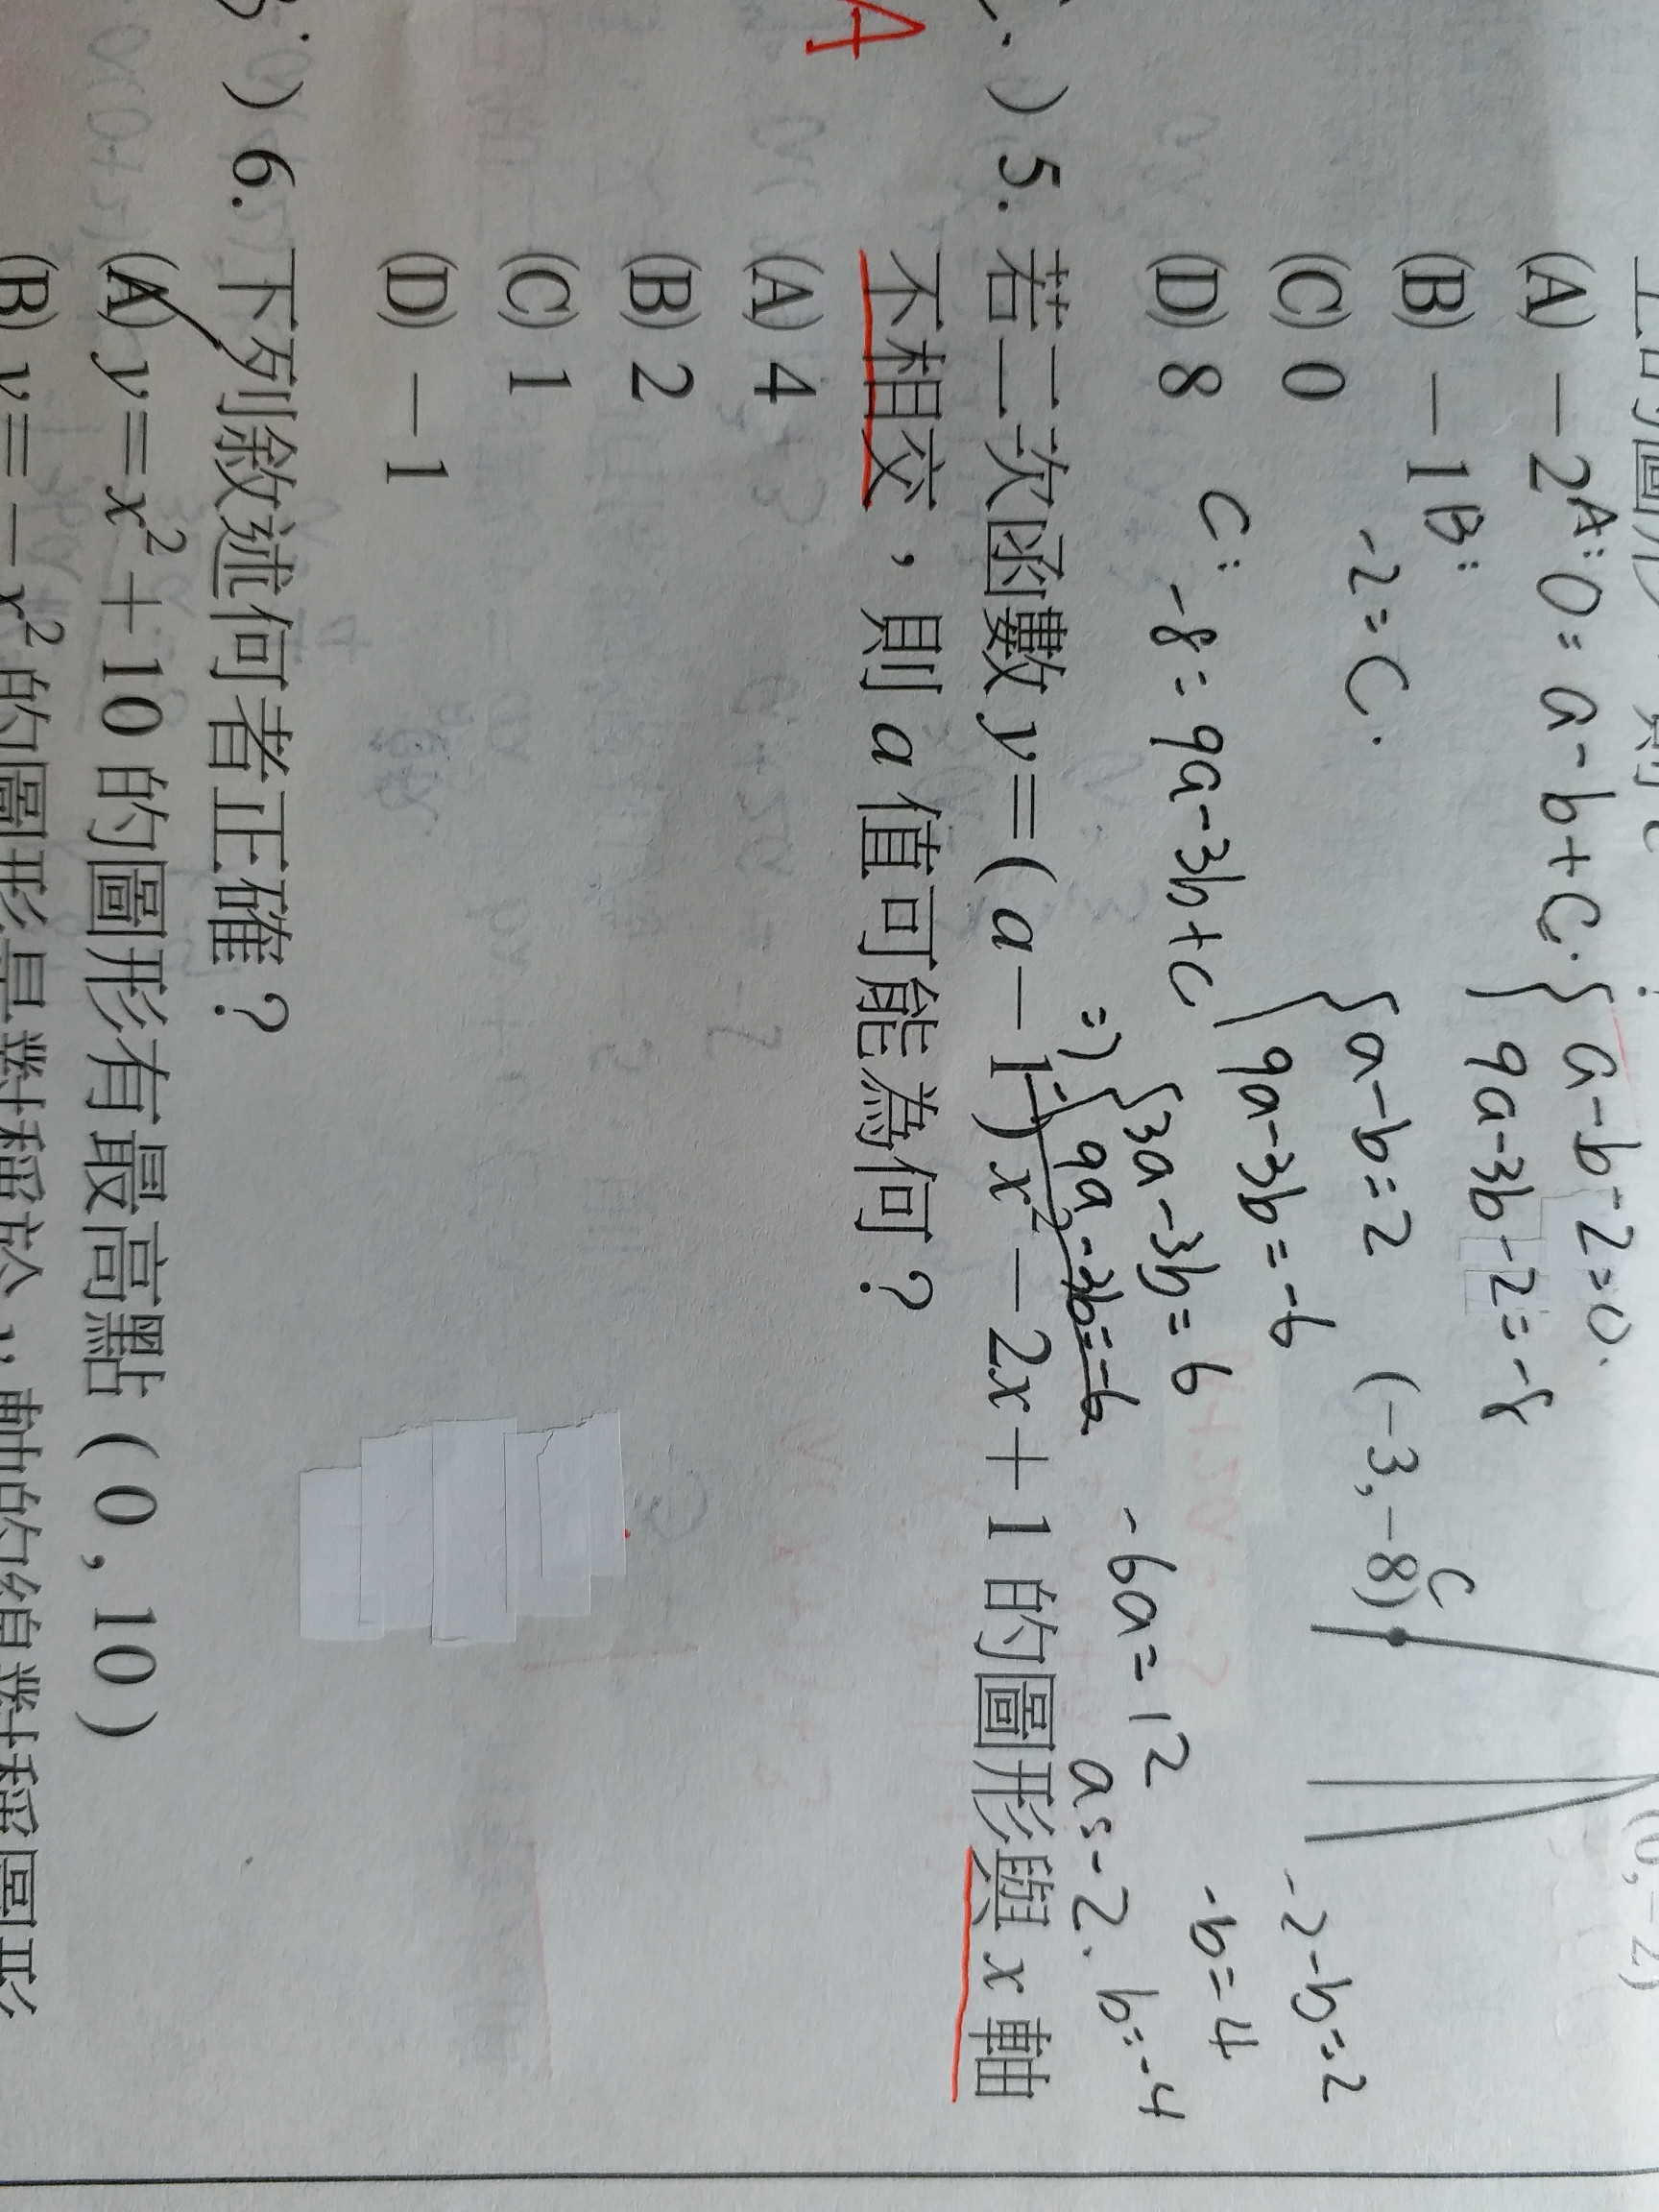 (A) －2
A: 0 = a - b + c.
{ a - b - 2 = 0.
9a - 3b - 2 = -8
(B) －1
B:
-2 = c.
{ a - b = 2
9a - 3b = -6
(－3,－8)
C
(C) 0
-2 - b = 2
(D) 8
C: -8 = 9a - 3b + c
=> { 3a - 3b = 6
9a - 3b = -6
-6a = 12
a = -2. b = -4
-b = 4
A
) 5. 若二次函數 y＝( a－1 ) x²－2x＋1 的圖形與 x 軸
不相交，則 a 值可能為何？
(A) 4
(B) 2
(C) 1
(D) －1
) 6. 下列敘述何者正確？
(A) y＝x²＋10 的圖形有最高點 ( 0 , 10 )
(B) y＝－x² 的圖形是對稱於 y 軸的線對稱圖形